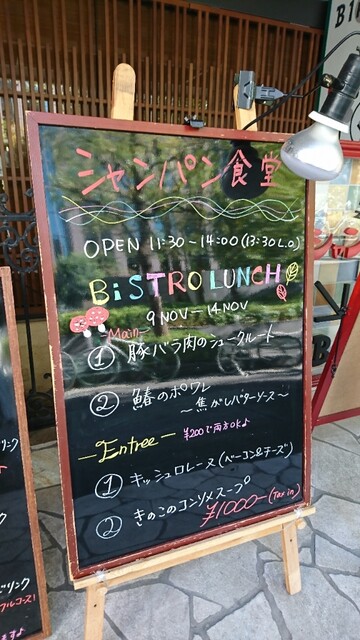 シャンパン食堂
OPEN 11:30-14:00 (13:30 L.O)
BiSTRO LUNCH
9 NOV — 14 NOV
-Main-
① 豚バラ肉のシュークルート
② 鰆のポワレ
～焦がしバターソース～
-Entree- ¥200で両方OKよ
① キッシュロレーヌ(ベーコン&チーズ)
② きのこのコンソメスープ
¥1000-(Tax in)